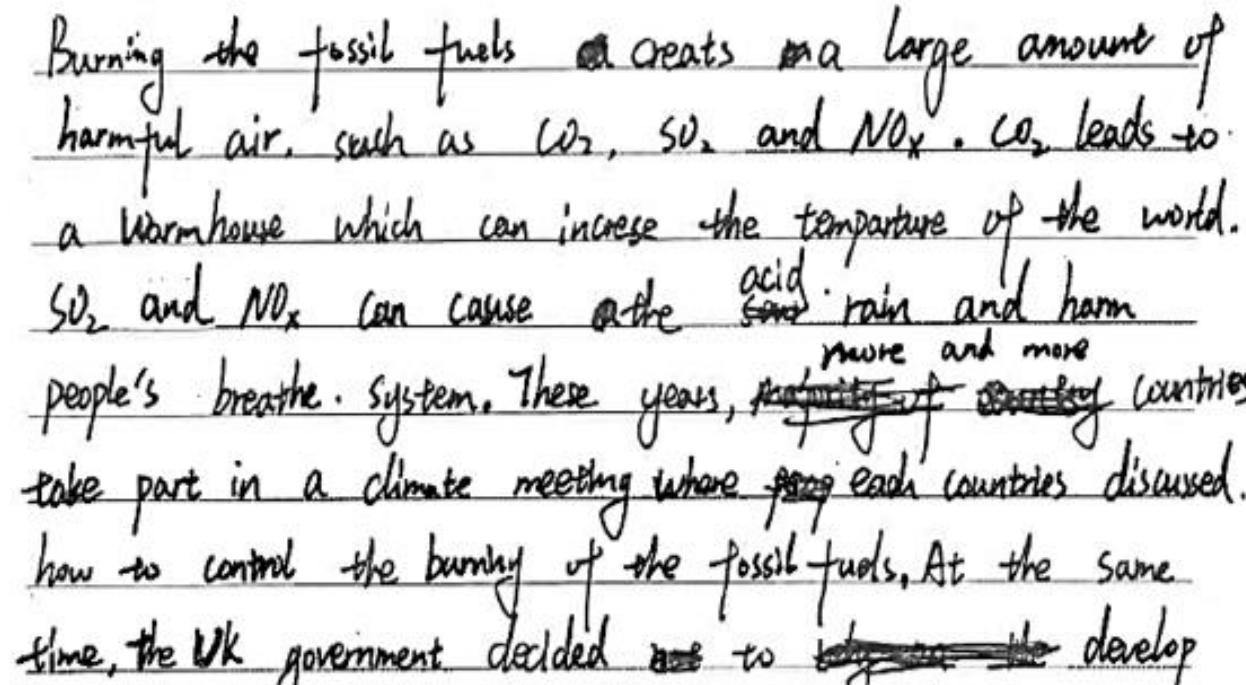 Burning the fossil fuels creats a large amount of
harmful air. such as CO2, SO2 and NOx. CO2 leads to
a warmhouse which can increse the temparture of the world.
SO2 and NOx can casuse the acid rain and harm
people's breathe. system. These years, more and more countries
take part in a climate meeting where each countries discussed.
how to control the burning of the fossil fuels. At the same
time, the UK government decided to develop